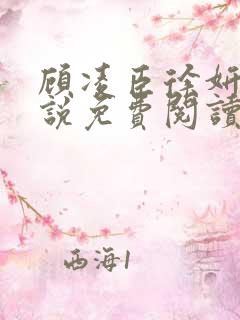 顾凌臣徐妍
說免費閱讀
西海1